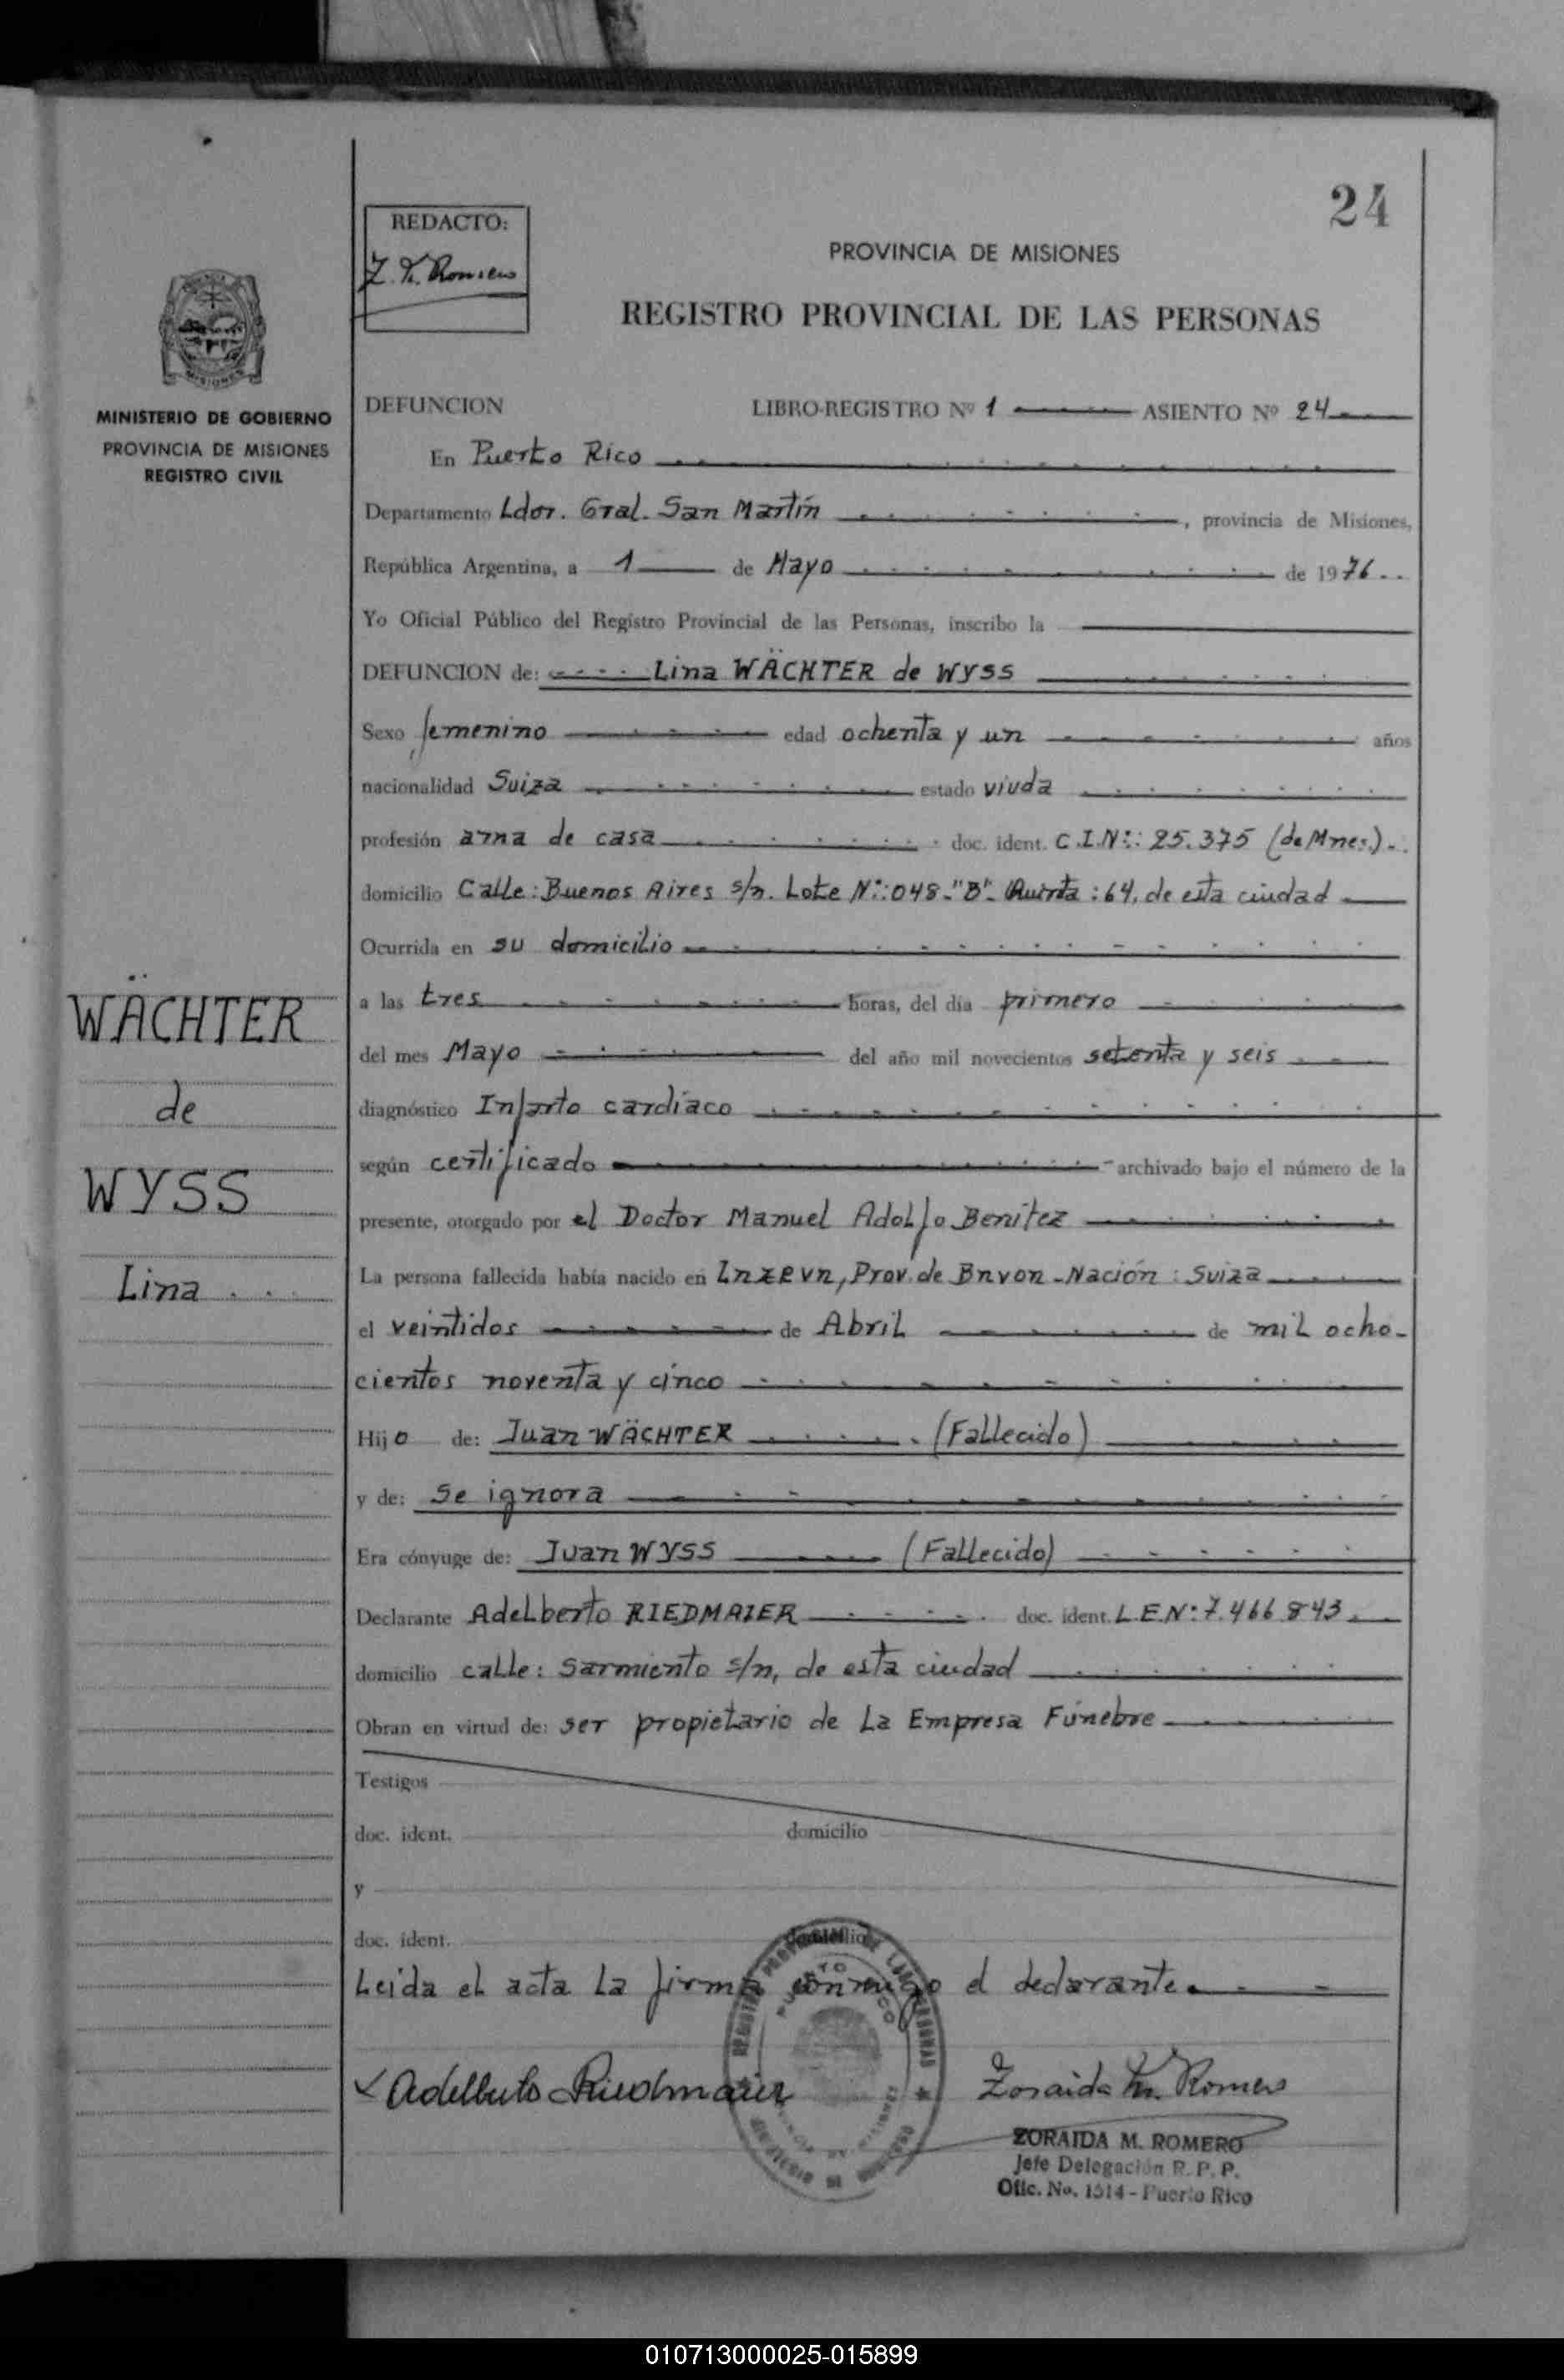 24
REDACTO:
Z. M. Romero
PROVINCIA DE MISIONES
REGISTRO PROVINCIAL DE LAS PERSONAS
MISIONES
MINISTERIO DE GOBIERNO
PROVINCIA DE MISIONES
REGISTRO CIVIL
WÄCHTER
de
WYSS
Lina
DEFUNCION LIBRO-REGISTRO Nº 1 ASIENTO Nº 24
En Puerto Rico
Departamento Ldor. Gral. San Martín, provincia de Misiones,
República Argentina, a 1 de Mayo de 1976
Yo Oficial Público del Registro Provincial de las Personas, inscribo la
DEFUNCION de: Lina WÄCHTER de WYSS
Sexo femenino edad ochenta y un años
nacionalidad Suiza estado viuda
profesión ama de casa doc. ident. C.I.Nº: 25.375 (de Mnes.)
domicilio Calle: Buenos Aires s/n. Lote Nº: 048-"B"- Quinta: 64, de esta ciudad
Ocurrida en su domicilio
a las tres horas, del día primero
del mes Mayo del año mil novecientos setenta y seis
diagnóstico Infarto cardíaco
según certificado archivado bajo el número de la
presente, otorgado por el Doctor Manuel Adolfo Benítez
La persona fallecida había nacido en Inzevn, Prov. de Bnvon - Nación: Suiza
el veintidos de Abril de mil ocho-
cientos noventa y cinco
Hijo de: Juan WÄCHTER (Fallecido)
y de: Se ignora
Era cónyuge de: Juan WYSS (Fallecido)
Declarante Adelberto RIEDMAIER doc. ident. L.E.Nº: 7.466.843
domicilio calle: Sarmiento s/n, de esta ciudad
Obran en virtud de: ser propietario de La Empresa Fúnebre
Testigos
doc. ident. domicilio
y
doc. ident. domicilio
Leida el acta la firma conmigo el declarante
Adelberto Riedmaier Zoraida M. Romero
ZORAIDA M. ROMERO
Jefe Delegación R. P. P.
Ofic. No. 1514 - Puerto Rico
010713000025-015899